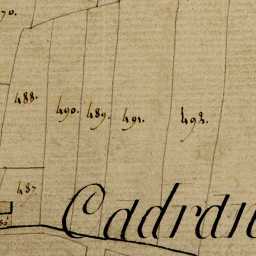 70.
488.
490. 489. 491. 492.
487
Cadran